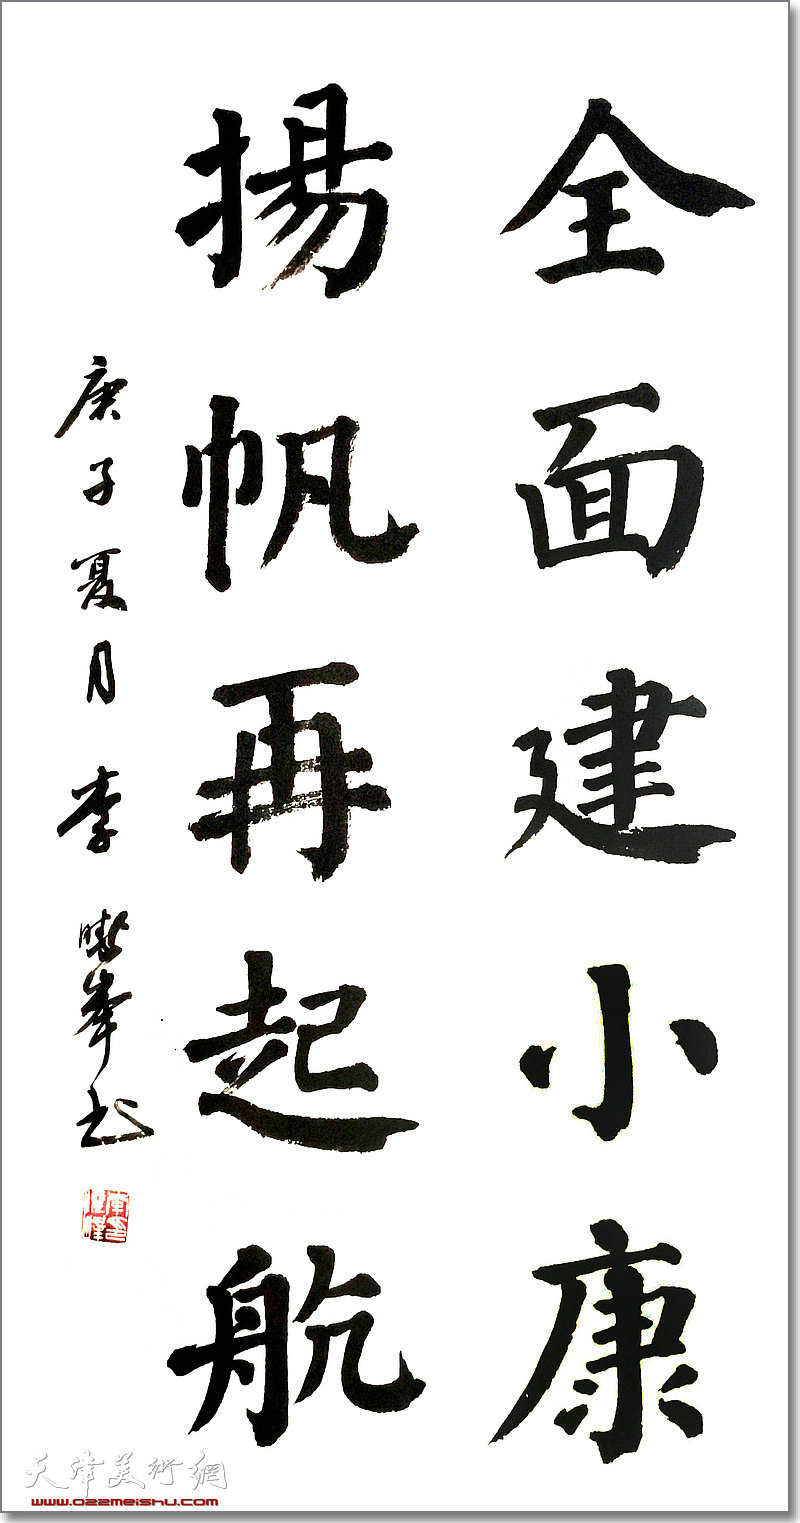 全面建小康
揚帆再起航
庚子夏月 李曉峯书
天津美術網
www.022meishu.com